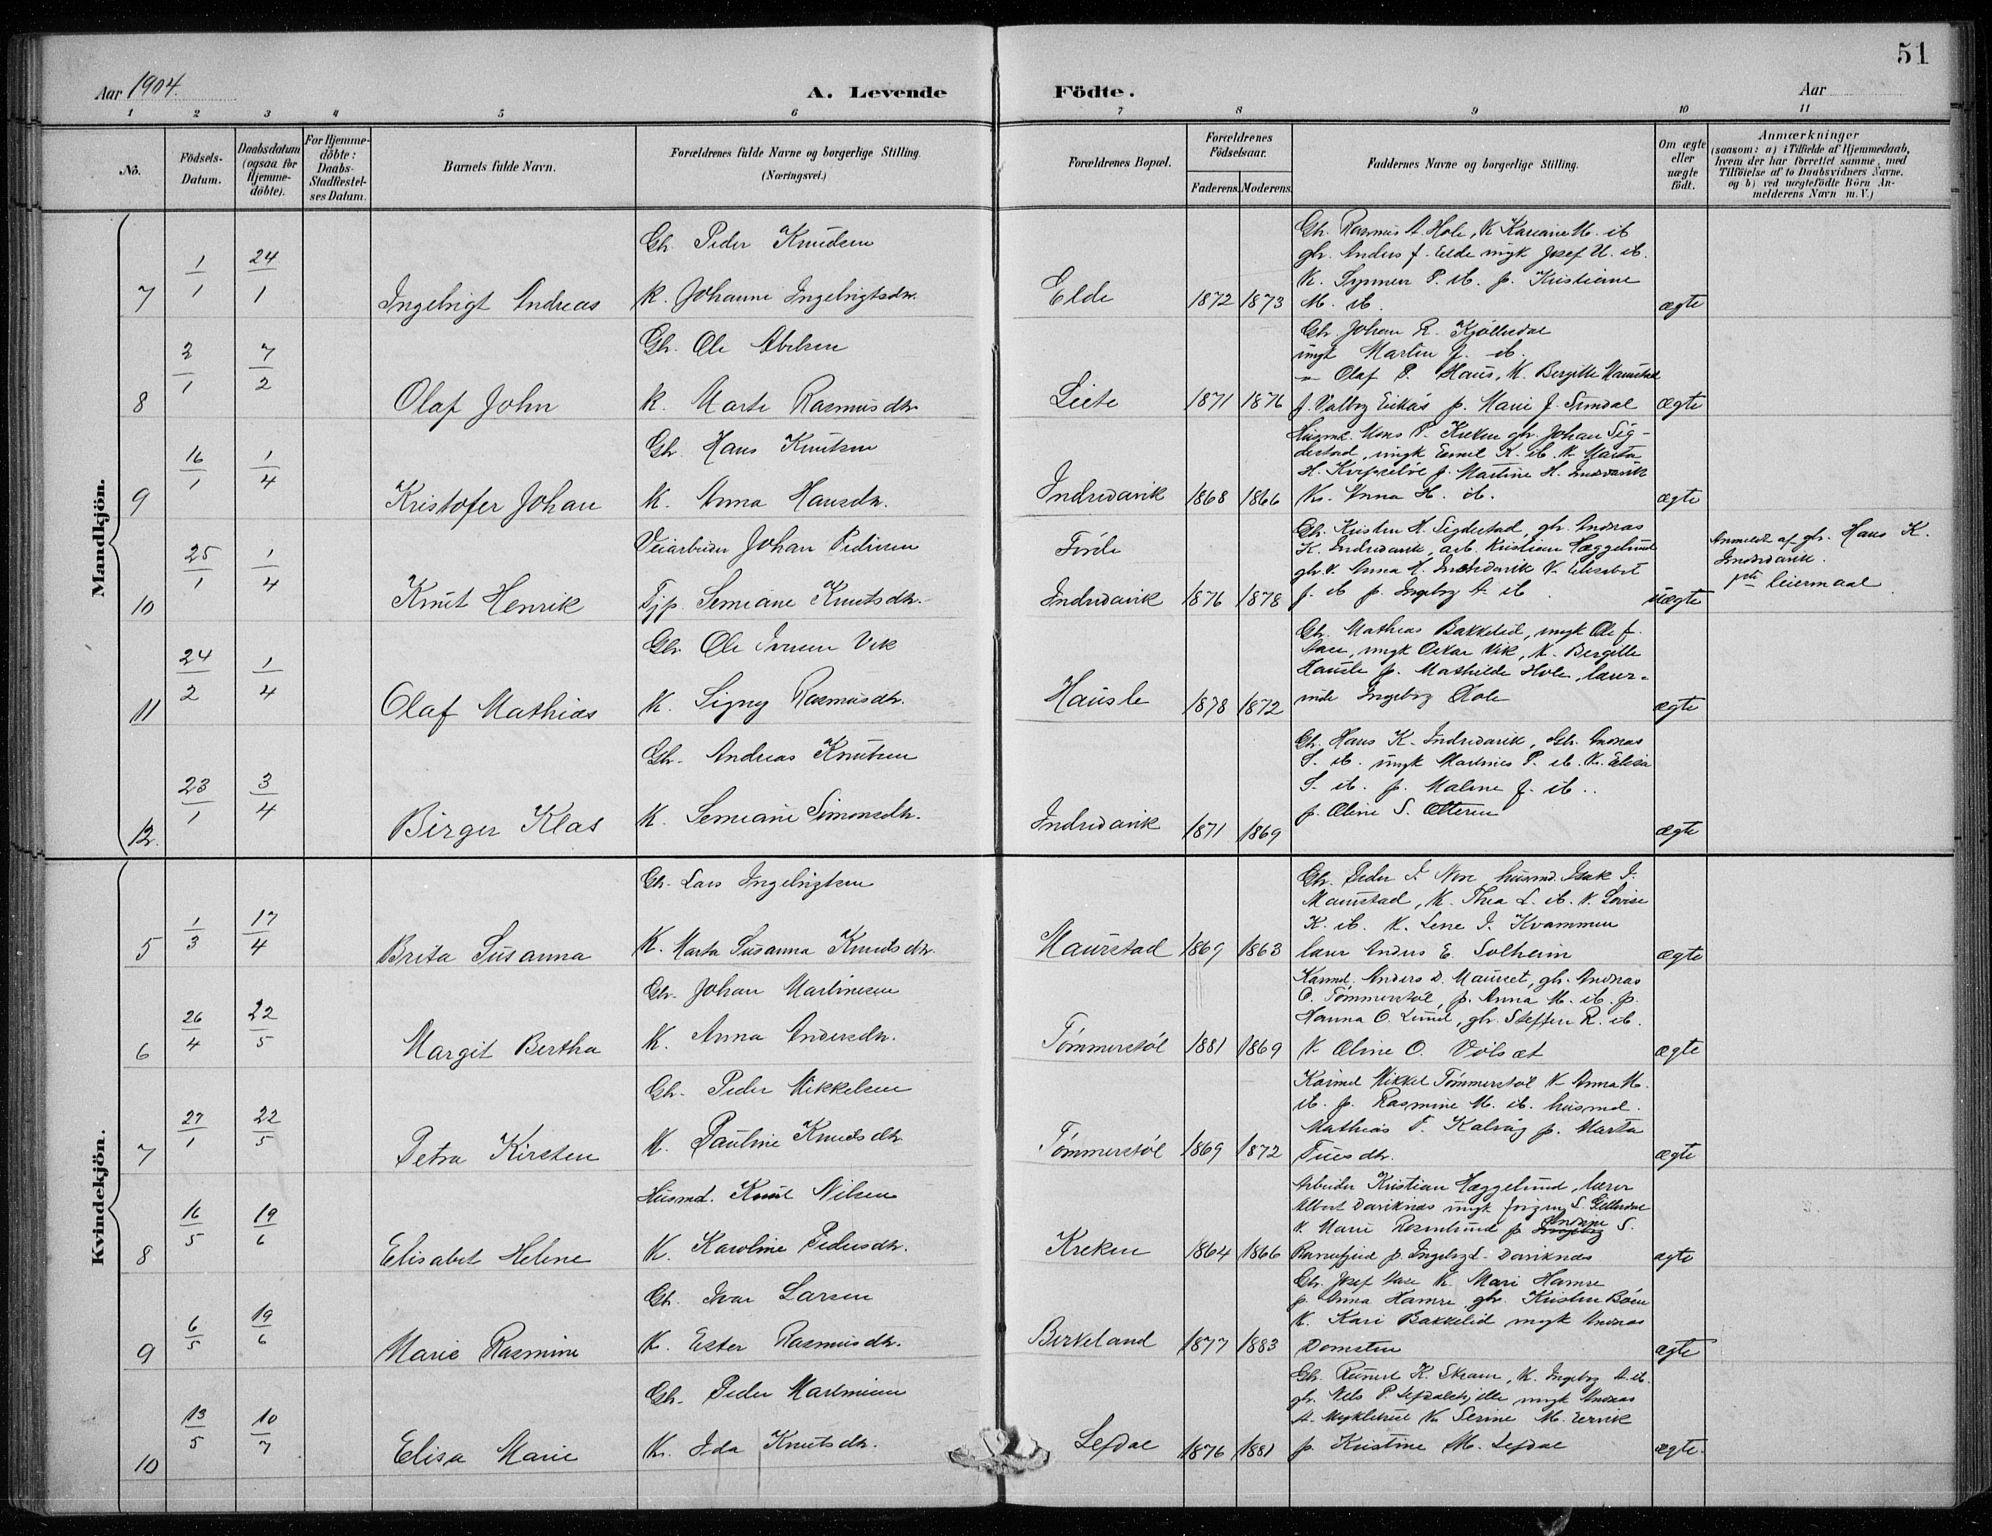 51
Aar 1904.
A. Levende Födte.
Aar
1 2 3 4 5 6 7 8 9 10 11
No.
Födsels-Datum.
Daabsdatum (ogsaa for Hjemme-döbte).
For Hjemme-döbte: Daabs-Stadfæstel-ses Datum.
Barnets fulde Navn.
Forældrenes fulde Navne og borgerlige Stilling. (Næringsvei.)
Forældrenes Bopæl.
Forældrenes Födselsaar.
Faderens. Moderens.
Faddernes Navne og borgerlige Stilling.
Om ægte eller uægte födt.
Anmærkninger
(saasom: a) i Tilfælde af Hjemmedaab, hvem der har forrettet samme, med Tilföielse af to Daabsvidners Navne, og b) ved uægtefödte Börn An-melderens Navn m. V.)
Mandkjön.
7 1/1 24/1 Ingebrigt Andreas
Gbr. Peder Knudsen
K. Johanne Ingebrigtsdtr.
Elde 1872 1873
Gbr. Rasmus A. Hole, K. Kariane M. ib
gbr. Anders J. Elde ungk Josef U. ib.
K. Synneve P. ib. p. Kristiane
M. ib.
ægte
8 2/1 7/2 Olaf John
Gbr. Ole Abelsen
K. Marte Rasmusdtr.
Leite 1871 1876
Gbr. Johan R. Kjöllesdal
ungk Martin J. ib.
Olaf P. Haus, K. Bergitte Maurstad
J. Valborg Eikås p. Marie J. Srindal
ægte
9 16/1 1/4 Kristofer Johan
Gbr Hans Knutsen
K. Anna Hansdtr.
Indrevarik 1868 1866
Husmd. Mons P. Kreken gbr. Johan Sig-
destad, ungk Emil K. ib. K. Marta
H. Martine H. Indrevarik
K. Anna H. ib.
ægte
10 25/1 1/4 Knut Henrik
Veiarbeider Johan Pedersen
Tjp. Semiane Knutsdtr.
Förde
Indrevarik 1876 1878
Gbr. Kristen A. Sigdestad, gbr. Andreas
K. Indrevarik, arb. Kristian Hæggelund
gbr. K. Anna H. Indrevarik K. Elisabet
J. ib p. Ingeborg A. ib.
uægte
Anmeldt af gbr. Hans K.
Indrevarik.
leiermaal
11 24/2 1/4 Olaf Mathias
Gbr Ole Iversen Vik
K. Signy Rasmusdtr.
Hausle 1878 1872
Gbr. Mathias Bakkelid, ungk Ole J.
ungk Oskar Vik, K. Bergitte
Hausle p. Mathilde Hole, lærer-
inde Ingeborg Hole
ægte
12. 23/1 3/4 Birger Klas
Gbr. Andreas Knutsen
K. Semiane Simonsdtr.
Indrevarik 1871 1869
Gbr. Hans K. Indrevarik, Gbr. Andreas
S. ib. ungk Martines P. ib. K. Elisa
S. ib. p. Maline J. ib.
p. Oline S. Otteren
ægte
Kvindekjön.
5 1/3 17/4 Brita Susanna
Gbr. Lars Ingebrigtsen
K. Marta Susanna Knutsdtr.
Maurstad 1869 1863
Gbr. Peder I. Nore husmd. Isak I.
Maurstad, K. Thea L. ib. K. Lovise
K. ib. K. Lene I. Kvammen
lærer Anders E. Solheim
ægte
6 26/4 22/5 Margit Bertha
Gbr. Johan Martinesen
K. Anna Andersdtr.
Tømmerstøl 1881 1869
Kaarmd. Anders D. Mauset, gbr. Andreas
O. Tømmerstøl, p. Anna M. ib. p.
Hanna O. Lund, gbr. Steffen R. ib.
K Oline O. Volset
ægte
7 27/1 22/5 Petra Kirsten
Gbr. Peder Mikkelsen
K. Pauline Knutsdtr
Tømmerstøl 1869 1872
Kaarmd Mikkel Tømmerstøl K Anna M.
ib. p. Rasmine M. ib. husmd.
Mathias T. Kalvåg p. Marta
ægte
8 16/5 19/6 Elisabet Helene
Husmd. Knut Nilsen
K. Karoline Pedersdtr.
Kreken 1864 1866
Arbeider Kristian Hæggelund, lærer
Albert Dariknæs ungk Jørgen S.
K Marie Rosenlund p. S.
p. Ingeborg L. Dariknæs
ægte
9 6/5 19/6 Marie Rasmine
Gbr. Ivar Larsen
K. Ester Rasmusdtr.
Birkeland 1877 1883
Gbr. Josef K. Mari Hamre
p. Anna Hamre gbr. Kristen Böen
K. Kari Bakkelid ungk Andreas
Domsten
ægte
10 13/5 10/7 Elisa Marie
Gbr. Peder Martinusen
K. Ida Knutsdtr.
Lefdal 1876 1881
Gbr. K. Skaar, K. Ingeborg A. ib.
gbr. Nils P. ungk Andreas
A. Myklebust K. Serine M. Ervik
p. Kristine M. Lefdal
ægte.